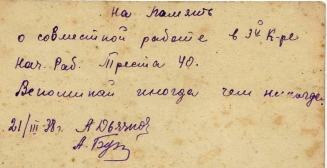 на память
о совместной работе в 34 К-ре
Нач. Раб. Треста 40.
Вспоминай иногда чем никогда
21/III-38г. А Дьячков
А.